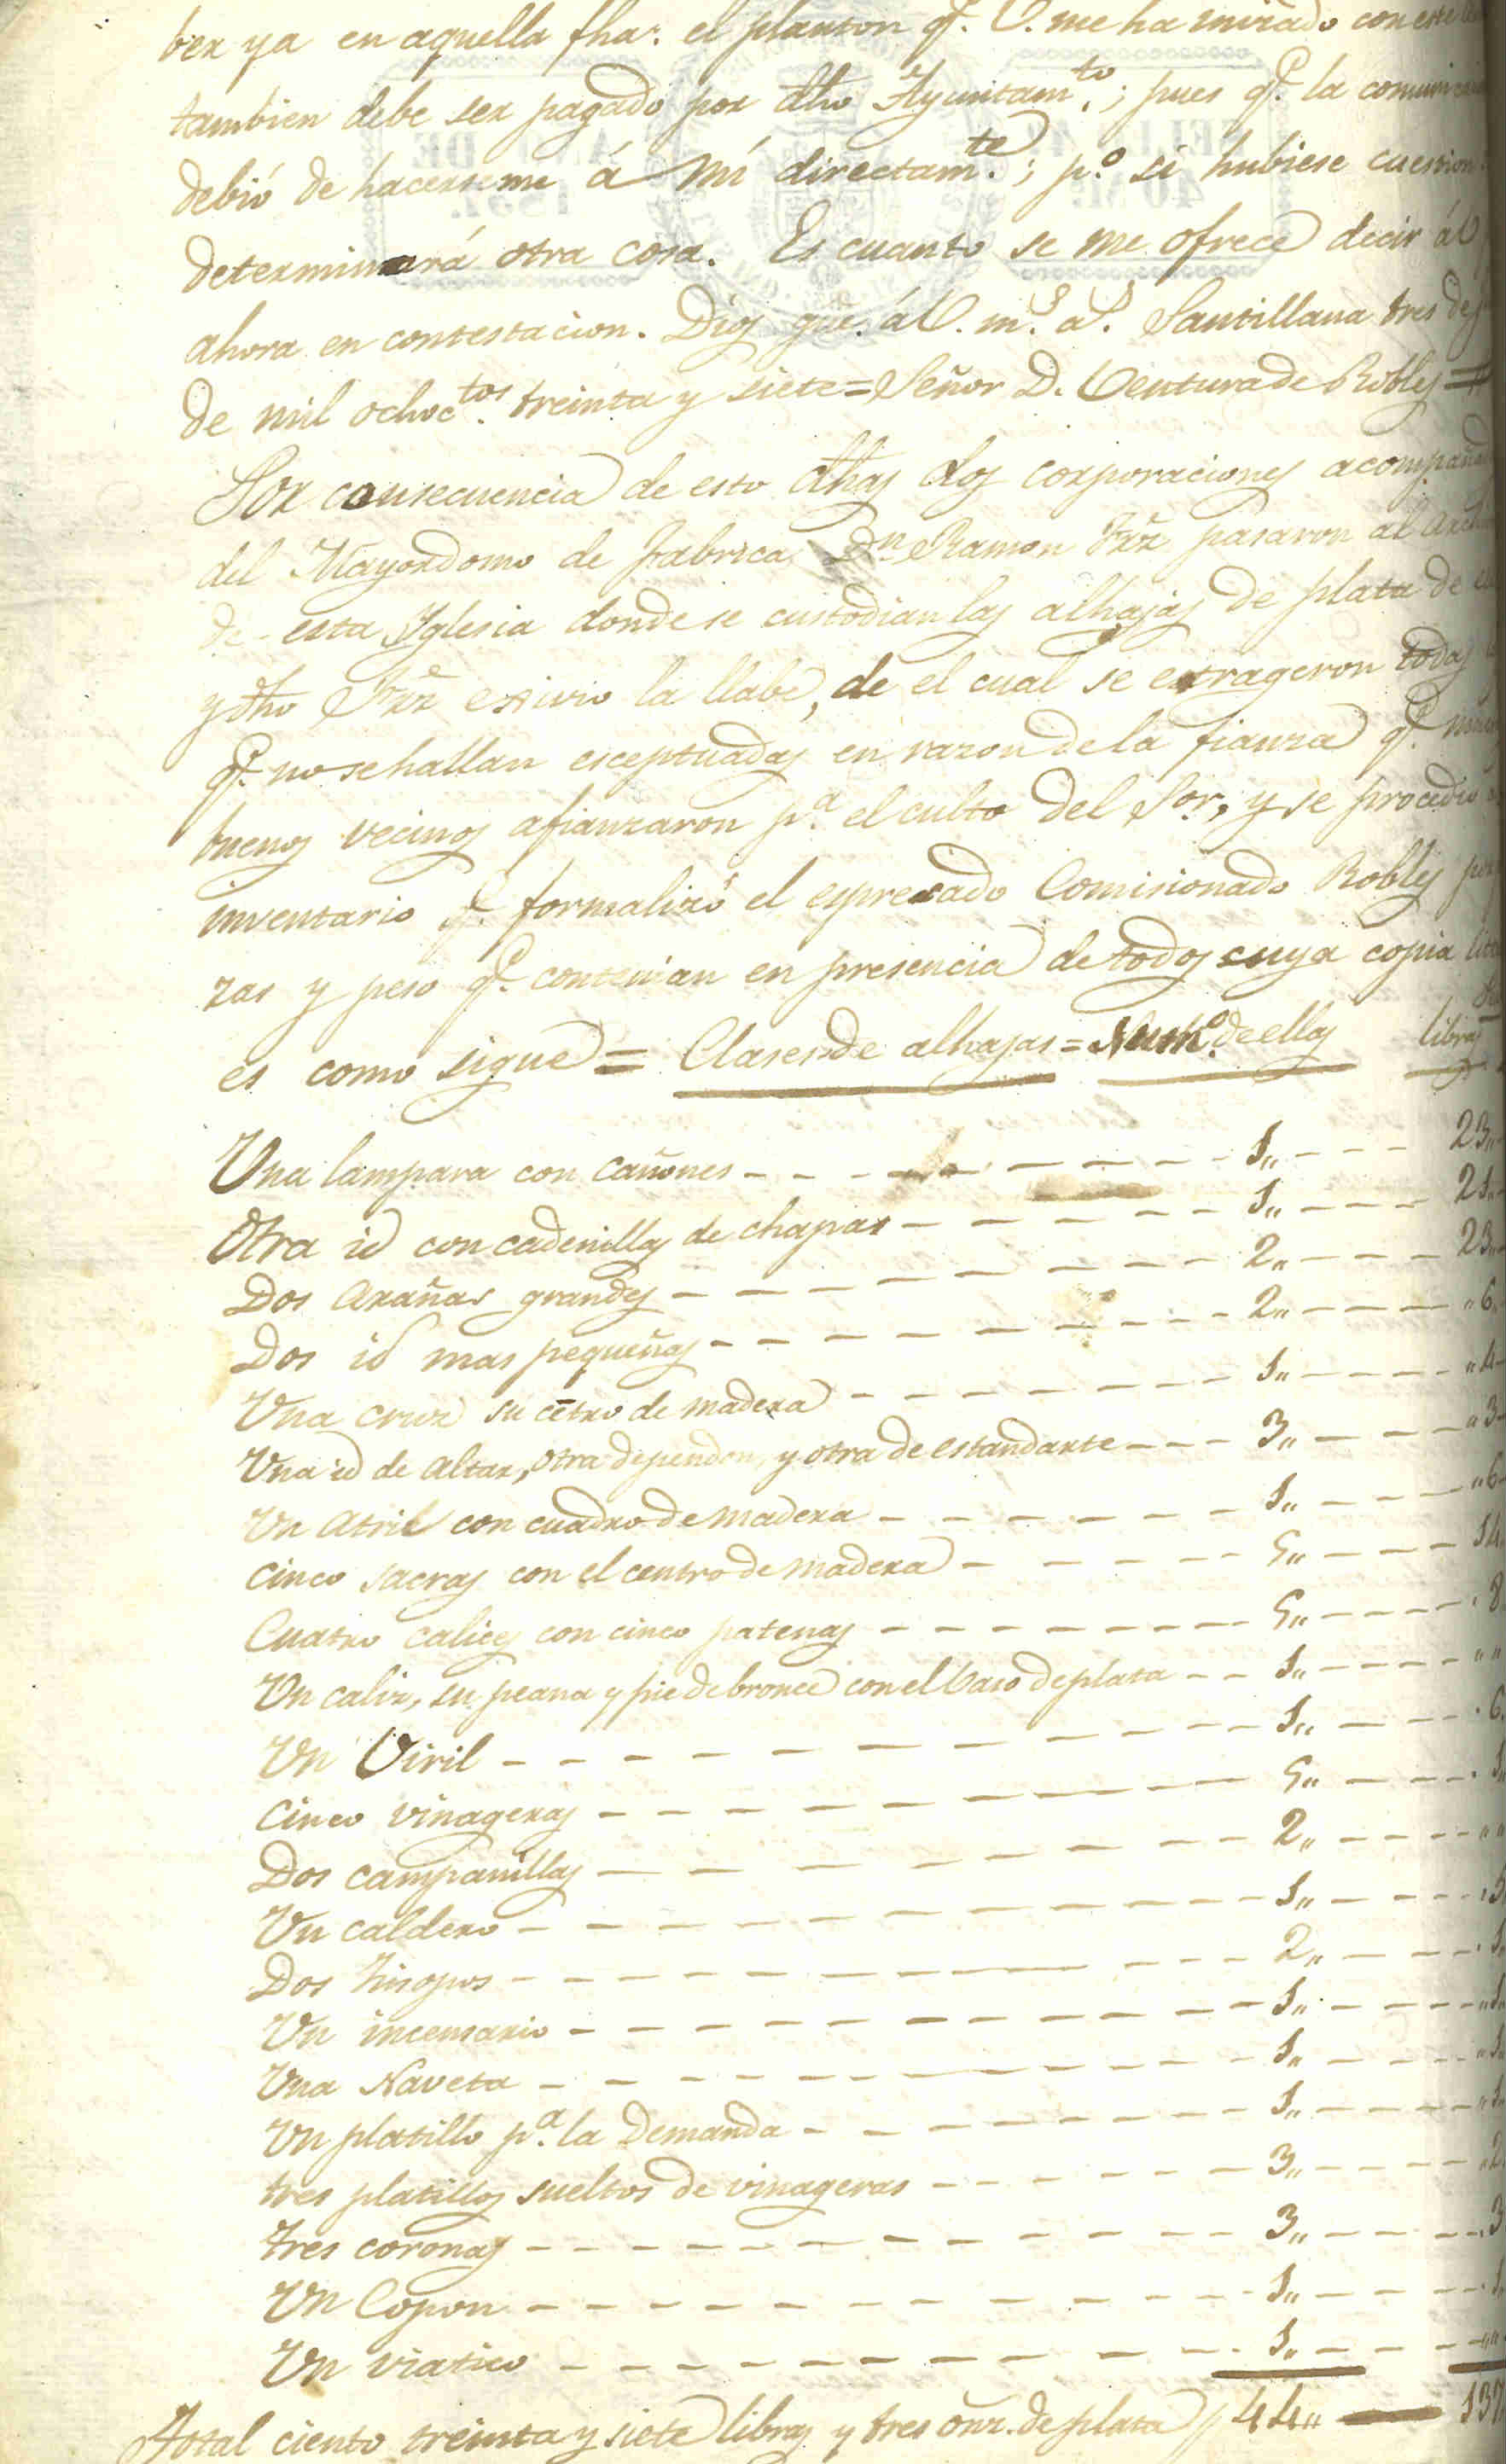 ber ya en aquella fha. el planton q.e V. me ha mirado con este
tambien debe ser pagado por dho Ayuntam.to; pues q.e la
debió de hacerseme á mí directam.te; p.o si hubiese cuestion
determinará otra cosa. Es cuanto se me ofrece decir á V
ahora en contestacion. Dios gue. á V. m.s a.s Santillana tres de
de mil ochoc.tos treinta y siete = Señor D. Ventura de Robles =
Por consecuencia de esto dhas dos corporaciones
del Mayordomo de fabrica Dn Ramon Frz pasaron al
de esta Yglesia donde se custodian las alhajas de plata de
y dho Frz exivio la llabe, de el cual se extrageron todas
q.e no se hallan esceptuadas en razon de la fianza q.e
buenos vecinos afianzaron p.a el culto del Sor, y se procedió
inventario q.e formalizó el espresado Comisionado Robles por
zas y peso q.e contenian en presencia de todos cuya copia
es como sigue = Clases de alhajas = Num.o de ellas libras
Una lampara con cañones - - - 1,, - - - 23,,
Otra id con cadenillas de chapas - - - 1,, - - - 21,,
Dos Arañas grandes - - - 2,, - - - 23,,
Dos id mas pequeñas - - - 2,, - - - ,,6,,
Una cruz su cẽtro de madera - - - 1,, - - - ,,4
Una id de Altar, otra de pendon, y otra de estandarte - - - 3,, - - - ,,3
Un Atril con cuadro de madera - - - 1,, - - - ,,6
Cinco sacras con el centro de madera - - - 5,, - - - 14
Cuatro calices con cinco patenas - - - 5,, - - - ,,8
Un caliz, su peana y pie de bronce con el Vaso de plata - - - 1,, - - - ,, ,,
Un Viril - - - 1,, - - - ,,6
Cinco vinageras - - - 5,, - - - ,,1
Dos campanillas - - - 2,, - - - ,, ,,
Un caldero - - - 1,, - - - ,,5
Dos hisopos - - - 2,, - - - ,,1
Un incensario - - - 1,, - - - ,,1
Una Naveta - - - 1,, - - - ,,1
Un platillo p.a la Demanda - - - 1,, - - - ,,1
tres platillos sueltos de vinageras - - - 3,, - - - ,,2
Tres coronas - - - 3,, - - - ,,3
Un Copon - - - 1,, - - - ,,1
Un viatico - - - 1,, - - - ,, ,,
Total ciento treinta y siete libras y tres onz. de plata 44,, - 137